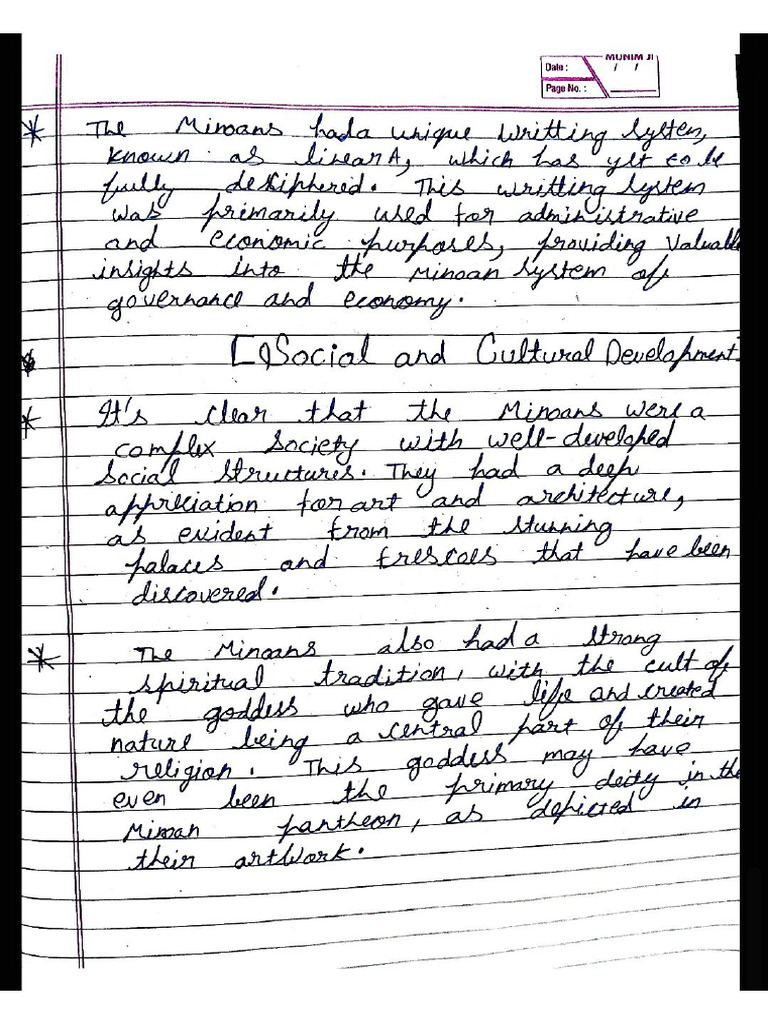 MUNIM JI
Date : / /
Page No. :
* The Minoans had a unique Writting System,
known as linear A, which has yet to be
fully deciphered. This writting System
was primarily used for administrative
and economic purposes, providing Valuable
insights into the Minoan System of
governance and economy.
Social and Cultural Development
* It's clear that the Minoans were a
complex Society with well-developed
Social Structures. They had a deep
appriciation for art and architecture,
as evident from the Stunning
palaces and frescoes that have been
discovered.
* The Minoans also had a Strong
Spiritual tradition, with the cult of
the goddess who gave life and created
nature being a central part of their
religion. This goddess may have
even been the primary deity in the
Minoan pantheon, as depicted in
their artWork.